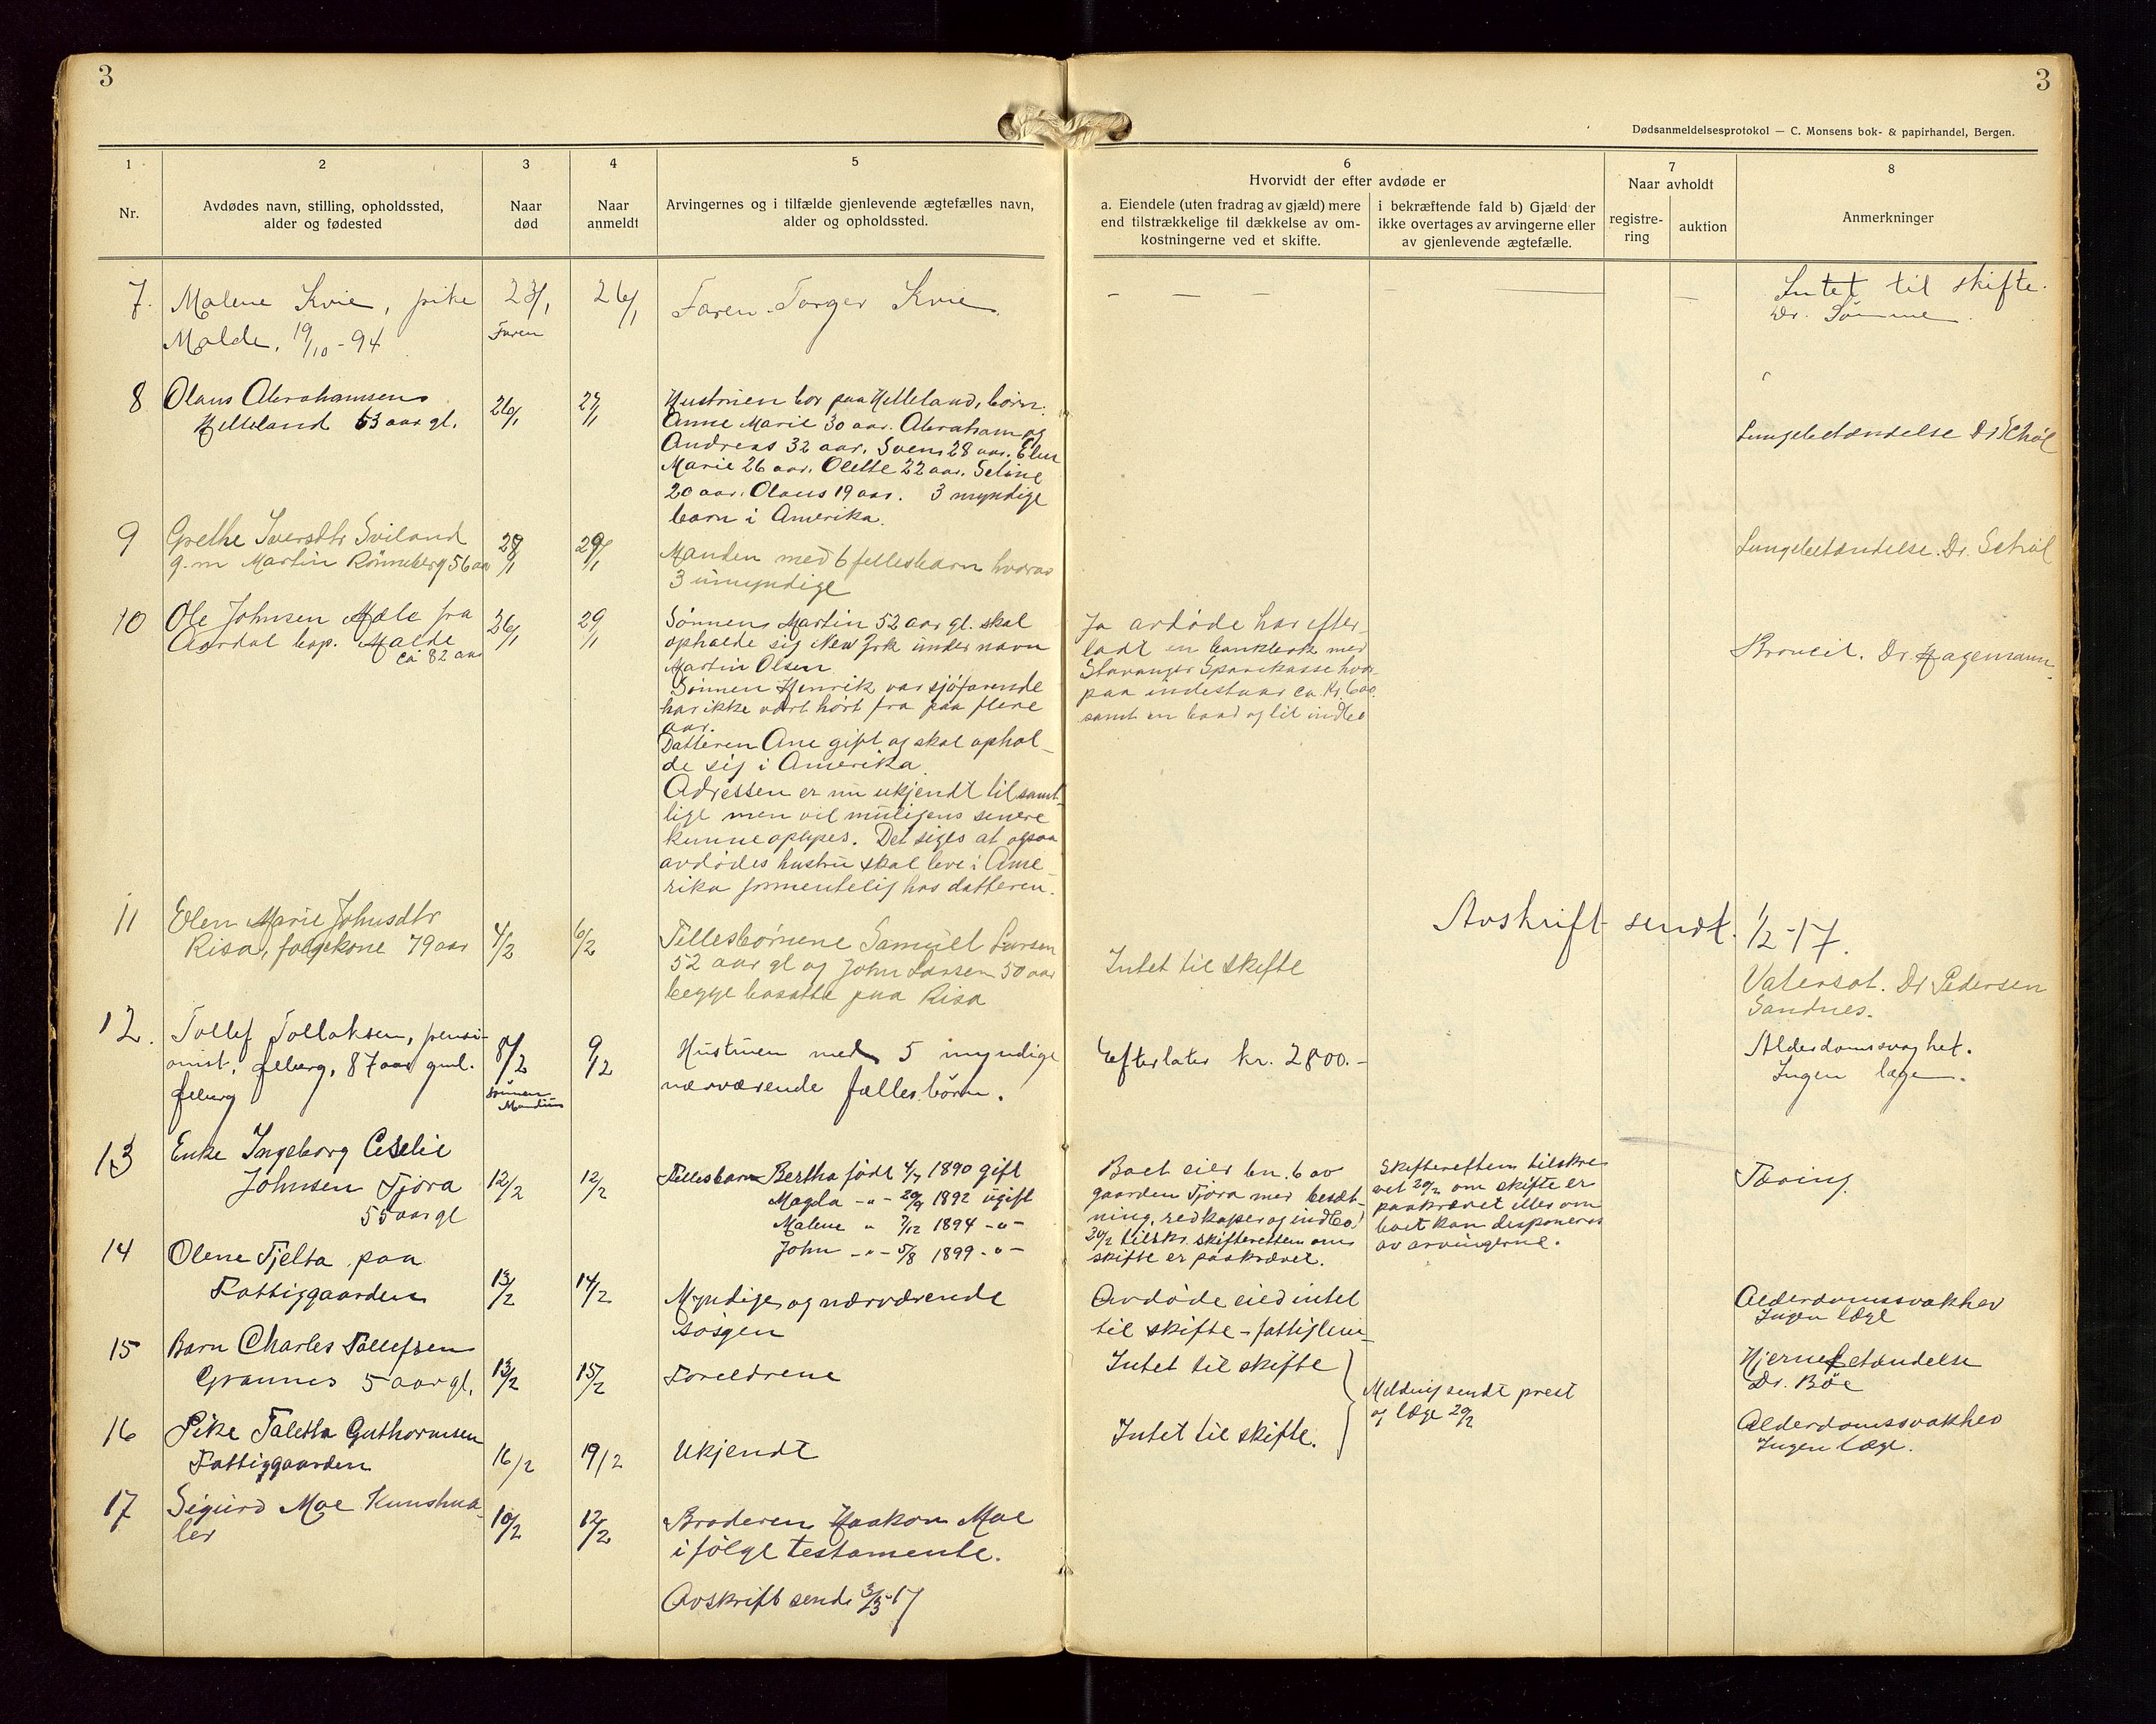 3
3
Dødsanmeldelsesprotokol — C. Monsens bok- & papirhandel, Bergen.
1 2 3 4 5 6 7 8
Nr.
Avdødes navn, stilling, opholdssted,
alder og fødested
Naar
død
Naar
anmeldt
Arvingernes og i tilfælde gjenlevende ægtefælles navn,
alder og opholdssted.
Hvorvidt der efter avdøde er
a. Eiendele (uten fradrag av gjæld) mere
end tilstrækkelige til dækkelse av om-
kostningerne ved et skifte.
i bekræftende fald b) Gjæld der
ikke overtages av arvingerne eller
av gjenlevende ægtefælle.
Naar avholdt
registre-
ring
auktion
Anmerkninger
7. Malene Kvie, pike
Malde, 19/10-94
23/1
Faren
26/1
Faren Torger Kvie.
— — — — — —
Intet til skifte.
Dr. Sømme.
8 Olaus Abrahamsen
Helleland 53 aar gl.
26/1
27/1
Hustruen bor paa Helleland, børn:
Anne Marie 30 aar. Abraham og
Andreas 32 aar. Sven 28 aar. Elen
Marie 26 aar. Olette 22 aar. Seline
20 aar. Olaus 19 aar. 3 myndige
barn i Amerika.
Lungebetændelse Dr Schøl
9 Grethe Iversdtr Sviland
g.m Martin Rønneberg 56 aar
28/1
29/1
Manden med 6 fellesbarn hvorav
3 umyndige
Lungebetændelse. Dr. Schøl
10 Ole Johnsen Mæle fra
Aardal bop. Malde
ca 82 aar
26/1
29/1
Sønnen Martin 52 aar gl. skal
opholde sig New Jork under navn
Martin Olsen
Sønnen Henrik var sjøfarende
har ikke vært hørt fra paa flere
aar.
Datteren Ane gift og skal ophol-
de sig i Amerika.
Adressen er nu ukjendt til samt-
lige men vil muligens senere
kunne opgges. Det siges at ogsaa
avdødes hustru skal leve i Ame-
rika formentelig hos datteren.
Ja avdøde har efter-
ladt en bankbok med
Stavanger Sparekasse hvor-
paa indestaar ca. Kr. 600.
samt en baad og lit indbo
Dr. Hagemann.
Avskrift sendt. 1/2-17.
11 Elen Marie Johnsdtr
Risa, folgekone 79 aar
4/2
6/2
Fellesbørnene Samuel Larsen
52 aar gl og John Larsen 50 aar
begge bosatte paa Risa
Intet til skifte
Vatersot. Dr Pedersen
Sandnes.
12. Tollef Tollaksen, pensi-
onist, Jelberg, 87 aar gml.
Jelberg
8/2
sønnen
9/12
Hustruen med 5 myndige
nærværende fællesbörn.
Efterlater kr. 2800.-
Alderdomssvaghet.
Ingen læge.
13 Enke Ingeborg Ceselie
Johnsen Tjora
55 aar gl
12/2
12/2
Fellesbarn Bertha født 4/7 1890 gift
Magda -"- 29/9 1892 ugift
Malene " 7/12 1894 -"-
John -"- 5/8 1899 -"-
Boet eier bn. 6 av
gaarden Tjora med besæt-
ning, redkaper og indbo.
20/2 tilskr. skifteretten om
skifte er paakrævet.
Skifteretten tilskre-
vet 20/2 om skifte er
paakrævet eller om
boet kan desponeres
av arvingerne.
Tæring.
14 Olene Tjelta paa
Fattiggaarden
13/2
14/2
Myndige og nærværende
søsgen
Avdøde eied intet
til skifte - fattiglem
Alderdomssvakhed
Ingen læge
15 Barn Charles Tollefsen
Grannes 5 aar gl.
13/2
15/2
Foreldrene
Intet til skifte
Melding sendt prest
og læge 20/2
Hjernebetændelse
Dr. Böe
16 Pike Taletta Guthormsen
Fattiggaarden
16/2
19/2
Ukjendt
Intet til skifte.
Alderdomssvakhed
Ingen læge.
17 Sigurd Moe Kunstma-
ler
10/2
12/2
Broderen Haakon Moe
i følge testamente.
Avskrift sendt 3/3-17